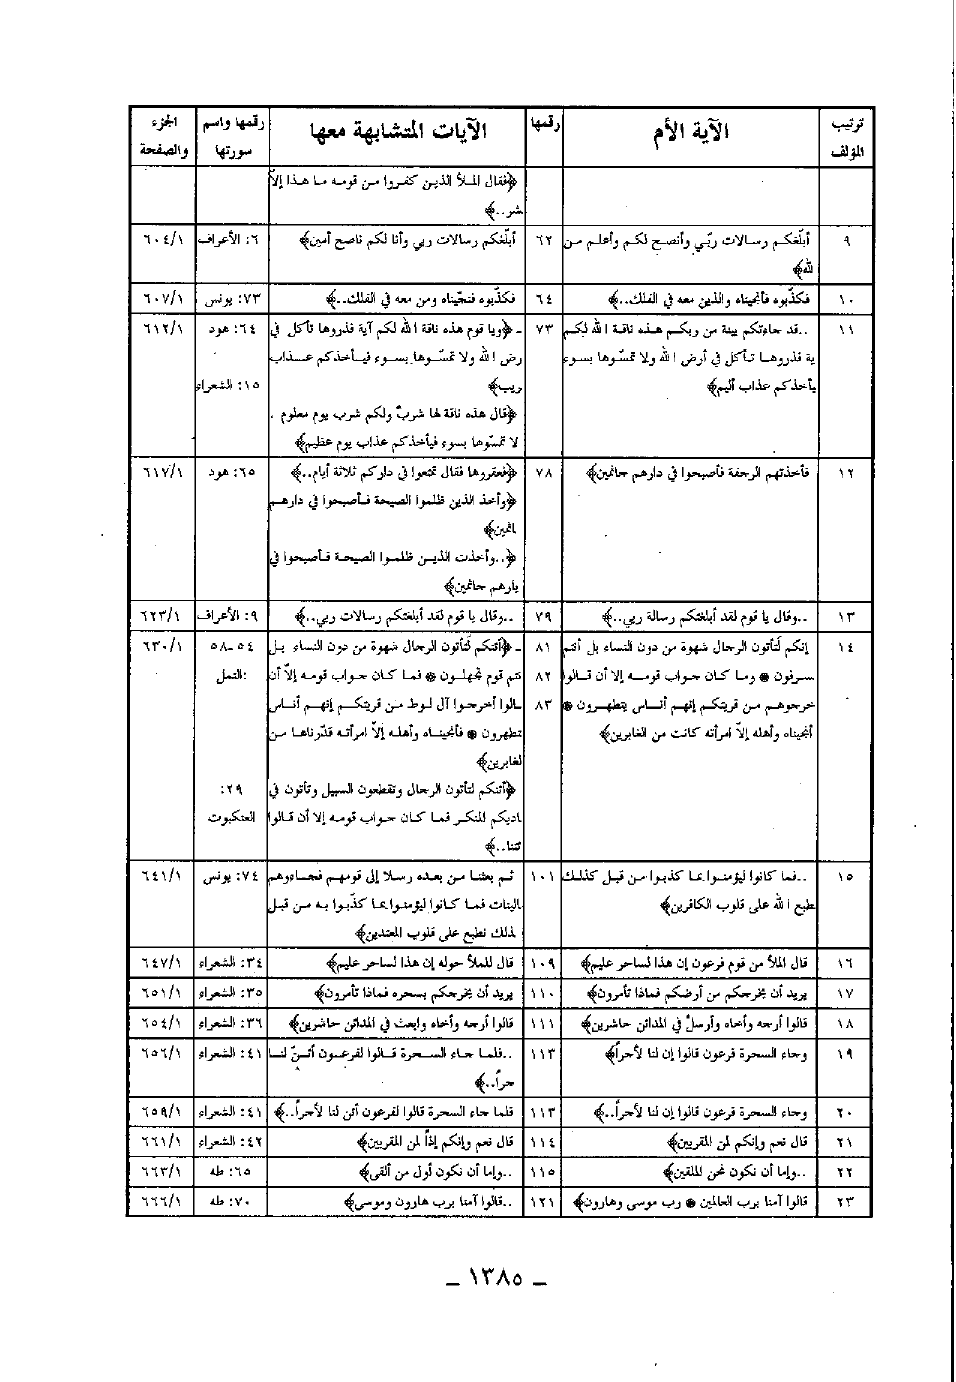 ترتيب المؤلف | الآية الأم | رقمها | الآيات المتشابهة معها | رقمها واسم سورتها | الجزء والصفحة
﴿فقال الملأ الذين كفروا من قومه ما هذا إلاّ
شر..﴾
٩ | أبلّغكم رسالات ربّي وأنصح لكم وأعلم من | ٦٢ | أبلّغكم رسالات ربي وأنا لكم ناصح أمين﴾ | ٦: الأعراف | ٦٠٤/١
لله﴾
١٠ | فكذّبوه فأنجيناه والذين معه في الفلك..﴾ | ٦٤ | فكذّبوه فنجّيناه ومن معه في الفلك..﴾ | ٧٣: يونس | ٦٠٧/١
١١ | ..قد جاءتكم بينة من ربكم هذه ناقة الله لكم | ٧٣ | ـ ﴿ويا قوم هذه ناقة الله لكم آية فذروها تأكل في | ٦٤: هود | ٦١٢/١
ية فذروها تأكل في أرض الله ولا تمسّوها بسوء | رض الله ولا تمسّوها بسوء فيأخذكم عذاب
يأخذكم عذاب أليم﴾ | ريب﴾ | ١٥: الشعراء
﴿قال هذه ناقة لها شربٌ ولكم شرب يوم معلوم .
لا تمسّوها بسوء فيأخذكم عذاب يوم عظيم﴾
١٢ | فأخذتهم الرجفة فأصبحوا في دارهم جاثمين﴾ | ٧٨ | ﴿فعقروها فقال تمتعوا في داركم ثلاثة أيام..﴾ | ٦٥: هود | ٦١٧/١
﴿وأخذ الذين ظلموا الصيحة فأصبحوا في دارهم
اثمين﴾
﴿..وأخذت الذين ظلموا الصيحة فأصبحوا في
يارهم جاثمين﴾
١٣ | ..وقال يا قوم لقد أبلغتكم رسالة ربي..﴾ | ٧٩ | ..وقال يا قوم لقد أبلغتكم رسالات ربي..﴾ | ٩: الأعراف | ٦٢٣/١
١٤ | إنكم لَتأتون الرجال شهوة من دون النساء بل أنتم | ٨١ | ـ ﴿أئنكم لَتأتون الرجال شهوة من دون النساء بل | ٥٤ـ٥٨ | ٦٣٠/١
سرفون * وما كان جواب قومه إلا أن قالوا | ٨٢ | نتم قوم تجهلون * فما كان جواب قومه إلاّ أن | :النمل
خرجوهم من قريتكم إنهم أناس يتطهرون * | ٨٣ | سالوا أخرجوا آل لوط من قريتكم إنهم أناس
أنجيناه وأهله إلاّ امرأته كانت من الغابرين﴾ | تطهرون * فأنجيناه وأهله إلاّ امرأته قدّرناها من
لغابرين﴾
﴿أئنكم لتأتون الرجال وتقطعون السبيل وتأتون في | ٢٩:
اديكم المنكر فما كان جواب قومه إلا أن قالوا | العنكبوت
ئتنا..﴾
١٥ | ..فما كانوا ليؤمنوا بما كذبوا من قبل كذلك | ١٠١ | ثم بعثنا من بعده رسلا إلى قومهم فجاءوهم | ٧٤: يونس | ٦٤١/١
طبع الله على قلوب الكافرين﴾ | البينات فما كانوا ليؤمنوا بما كذّبوا به من قبل
لذلك نطبع على قلوب المعتدين﴾
١٦ | قال الملأ من قوم فرعون إن هذا لساحر عليم﴾ | ١٠٩ | قال للملأ حوله إن هذا لساحر عليم﴾ | ٣٤: الشعراء | ٦٤٧/١
١٧ | يريد أن يخرجكم من أرضكم فماذا تأمرون﴾ | ١١٠ | يريد أن يخرجكم بسحره فماذا تأمرون﴾ | ٣٥: الشعراء | ٦٥١/١
١٨ | قالوا أرجه وأخاه وأرسلْ في المدائن حاشرين﴾ | ١١١ | قالوا أرجه وأخاه وابعث في المدائن حاشرين﴾ | ٣٦: الشعراء | ٦٥٤/١
١٩ | وجاء السحرة فرعون قالوا إن لنا لأجراً﴾ | ١١٣ | ..فلما جاء السحرة قالوا لفرعون أئنّ لنا | ٤١: الشعراء | ٦٥٦/١
جراً..﴾
٢٠ | وجاء السحرة فرعون قالوا إن لنا لأجراً..﴾ | ١١٣ | فلما جاء السحرة قالوا لفرعون أئن لنا لأجراً..﴾ | ٤١: الشعراء | ٦٥٩/١
٢١ | قال نعم وإنكم لمن المقربين﴾ | ١١٤ | قال نعم وإنكم إذاً لمن المقربين﴾ | ٤٢: الشعراء | ٦٦١/١
٢٢ | ..وإما أن نكون نحن الملقين﴾ | ١١٥ | ..وإما أن نكون أول من ألقى﴾ | ٦٥: طه | ٦٦٣/١
٢٣ | قالوا آمنا برب العالمين * رب موسى وهارون﴾ | ١٢١ | ..قالوا آمنا برب هارون وموسى﴾ | ٧٠: طه | ٦٦٦/١
ـ ١٣٨٥ ـ